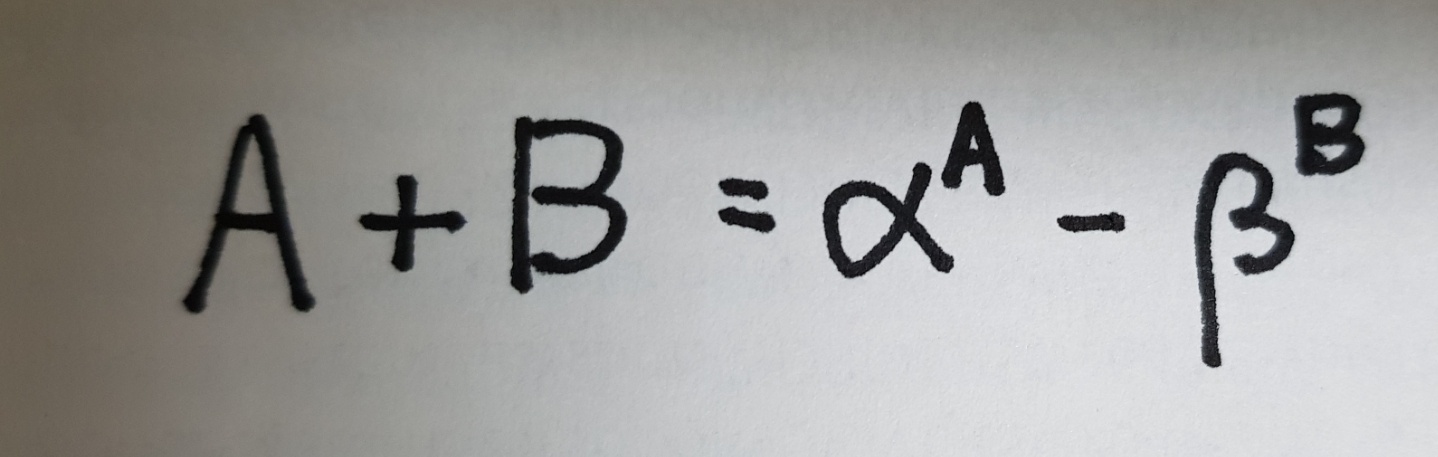 A + B = α^A - β^B